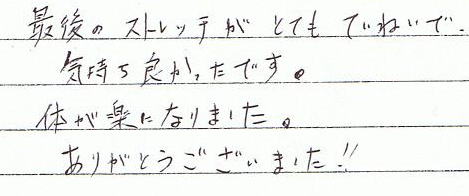 最後の ストレッチが とても ていねいで.
気持ち良かったです。
体が楽になりました。
ありがとうございました!!